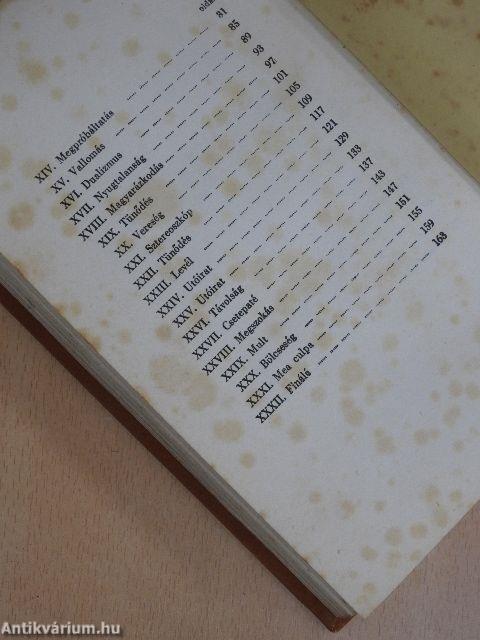 olda
XIV. Megpróbáltatás — — — — 81
XV. Vallomás — — — — — — 85
XVI. Dualizmus — — — — — — 89
XVII. Nyugtalanság — — — — — 93
XVIII. Magyarázkodás — — — — — 97
XIX. Tünődés — — — — — — 101
XX. Vereség — — — — — — 105
XXI. Sztereoszkóp — — — — — 109
XXII. Tünődés — — — — — — 117
XXIII. Levél — — — — — — — 121
XXIV. Utóirat — — — — — — 129
XXV. Utóirat — — — — — — 133
XXVI. Távolság — — — — — — 137
XXVII. Csetepaté — — — — — — 143
XXVIII. Megszokás — — — — — — 147
XXIX. Mult — — — — — — — 151
XXX. Bölcseség — — — — — — 155
XXXI. Mea culpa — — — — — — 159
XXXII. Finálé — — — — — — 163
Antikvárium.hu